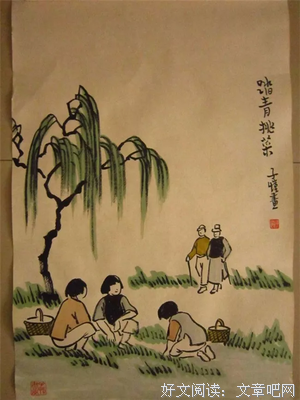 踏青挑菜
子愷畫
好文阅读：文章吧网